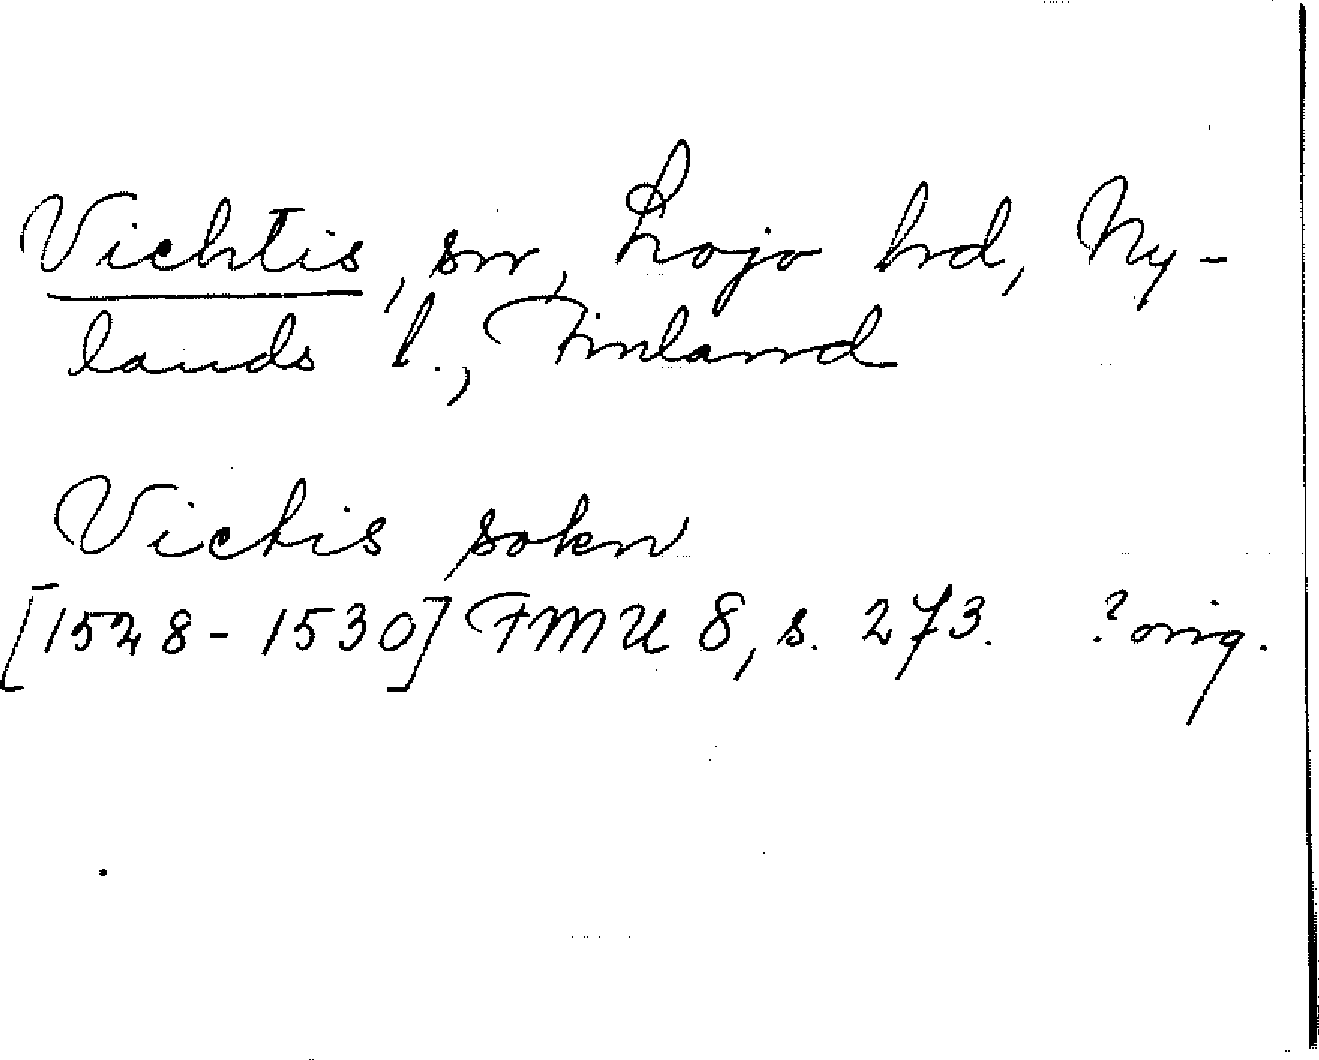 Vichtis, sn, Lojo hd, Ny-
lands l., Finland
Victis sokn
[1528-1530] FMU 8, s. 273. ? orig.